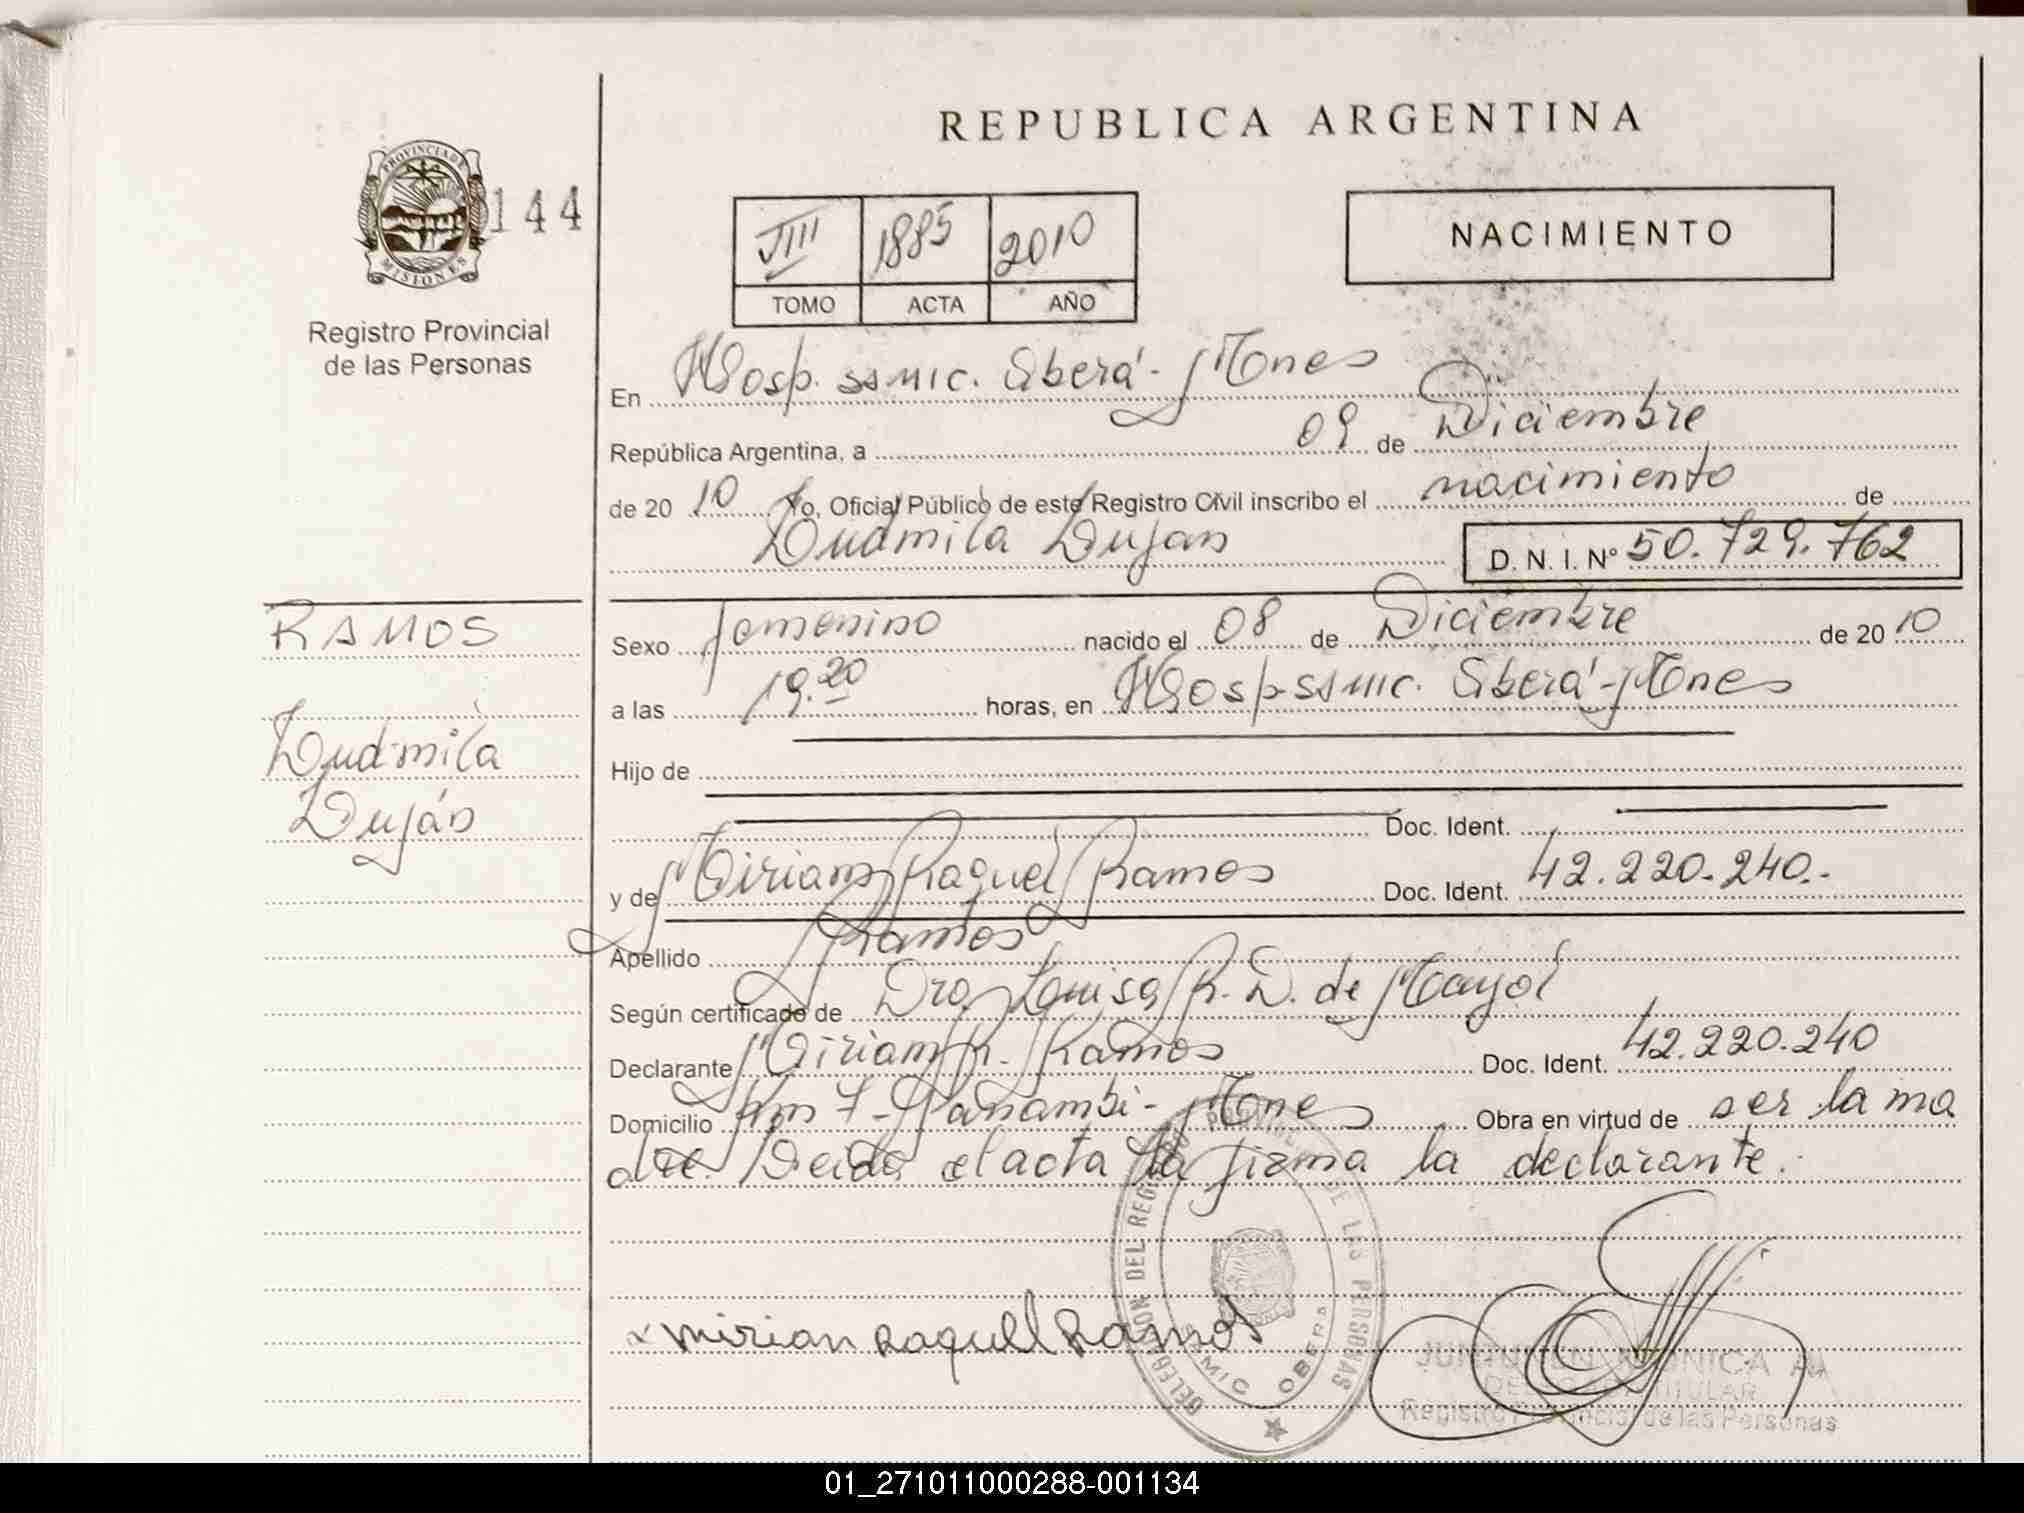 REPUBLICA ARGENTINA
PROVINCIA DE
MISIONES
144
Registro Provincial
de las Personas
VIII 1885 2010
TOMO ACTA AÑO
NACIMIENTO
En Hosp. ssmic. Oberá - Mones
República Argentina, a 09 de Diciembre
de 20 10 Yo, Oficial Público de este Registro Civil inscribo el nacimiento de
Ludmila Lujan D. N. I. Nº 50.729.762
RAMOS
Ludmila
Luján
Sexo femenino nacido el 08 de Diciembre de 20 10
a las 19.20 horas, en Hosp. ssmic. Oberá - Mones
Hijo de
Doc. Ident.
y de Miriam Raquel Ramos Doc. Ident. 42.220.240.-
Apellido Ramos
Según certificado de Dra. Louisa R. D. de Mayol
Declarante Miriam R. Ramos Doc. Ident. 42.220.240
Domicilio Km 7 - Panambi - Mones Obra en virtud de ser la ma
dre. Leida el acta la firma la declarante.
mirian Raquel Ramos
DELEGACION DEL REGISTRO PROVINCIAL DE LAS PERSONAS
SAMIC OBERA
MONICA
TITULAR
Registro Provincial de las Personas
01_271011000288-001134